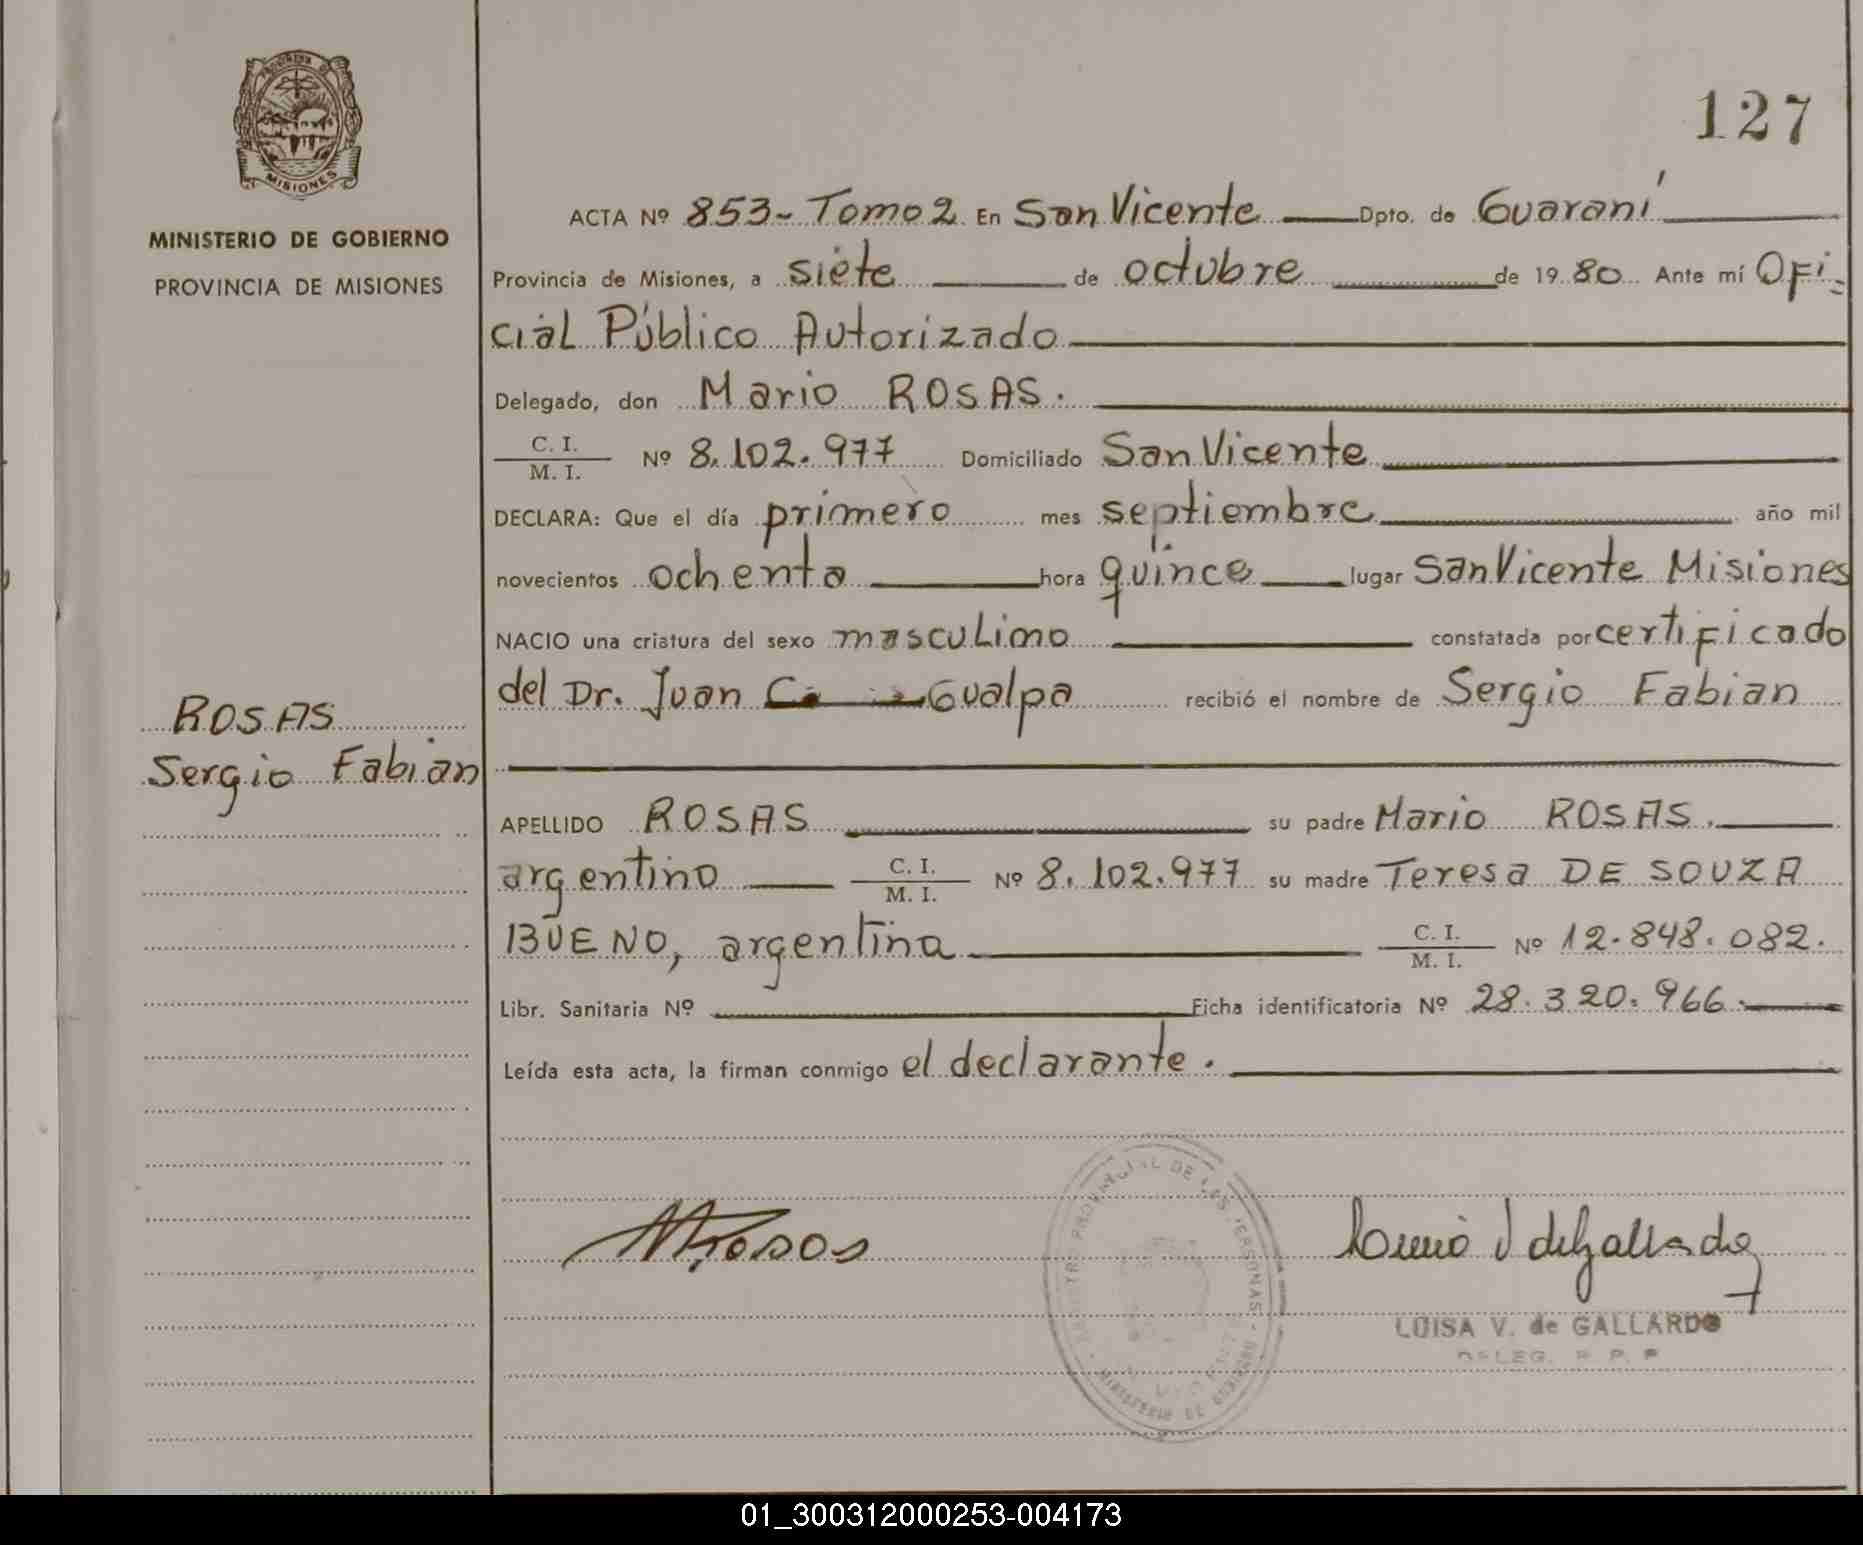 127
MINISTERIO DE GOBIERNO
PROVINCIA DE MISIONES
MISIONES
ROSAS
Sergio Fabian
ACTA Nº 853- Tomo 2. En San Vicente Dpto. de Guaraní
Provincia de Misiones, a siete de octubre de 1980 Ante mí Ofi-
cial Público Autorizado
Delegado, don Mario ROSAS.
C. I.
M. I. Nº 8.102.977 Domiciliado San Vicente
DECLARA: Que el día primero mes septiembre año mil
novecientos ochenta hora quince lugar San Vicente Misiones
NACIO una criatura del sexo masculino constatada por certificado
del Dr. Juan Gualpa recibió el nombre de Sergio Fabian
APELLIDO ROSAS su padre Mario ROSAS.
argentino C. I. M. I. Nº 8.102.977 su madre Teresa DE SOUZA
BUENO, argentina C. I. M. I. Nº 12.848.082.
Libr. Sanitaria Nº Ficha identificatoria Nº 28.320.966.
Leída esta acta, la firman conmigo el declarante.
MRosas
PROVINCIAL DE LAS PERSONAS
LUISA V. de GALLARDO
DELEG. R. P. P.
01_300312000253-004173